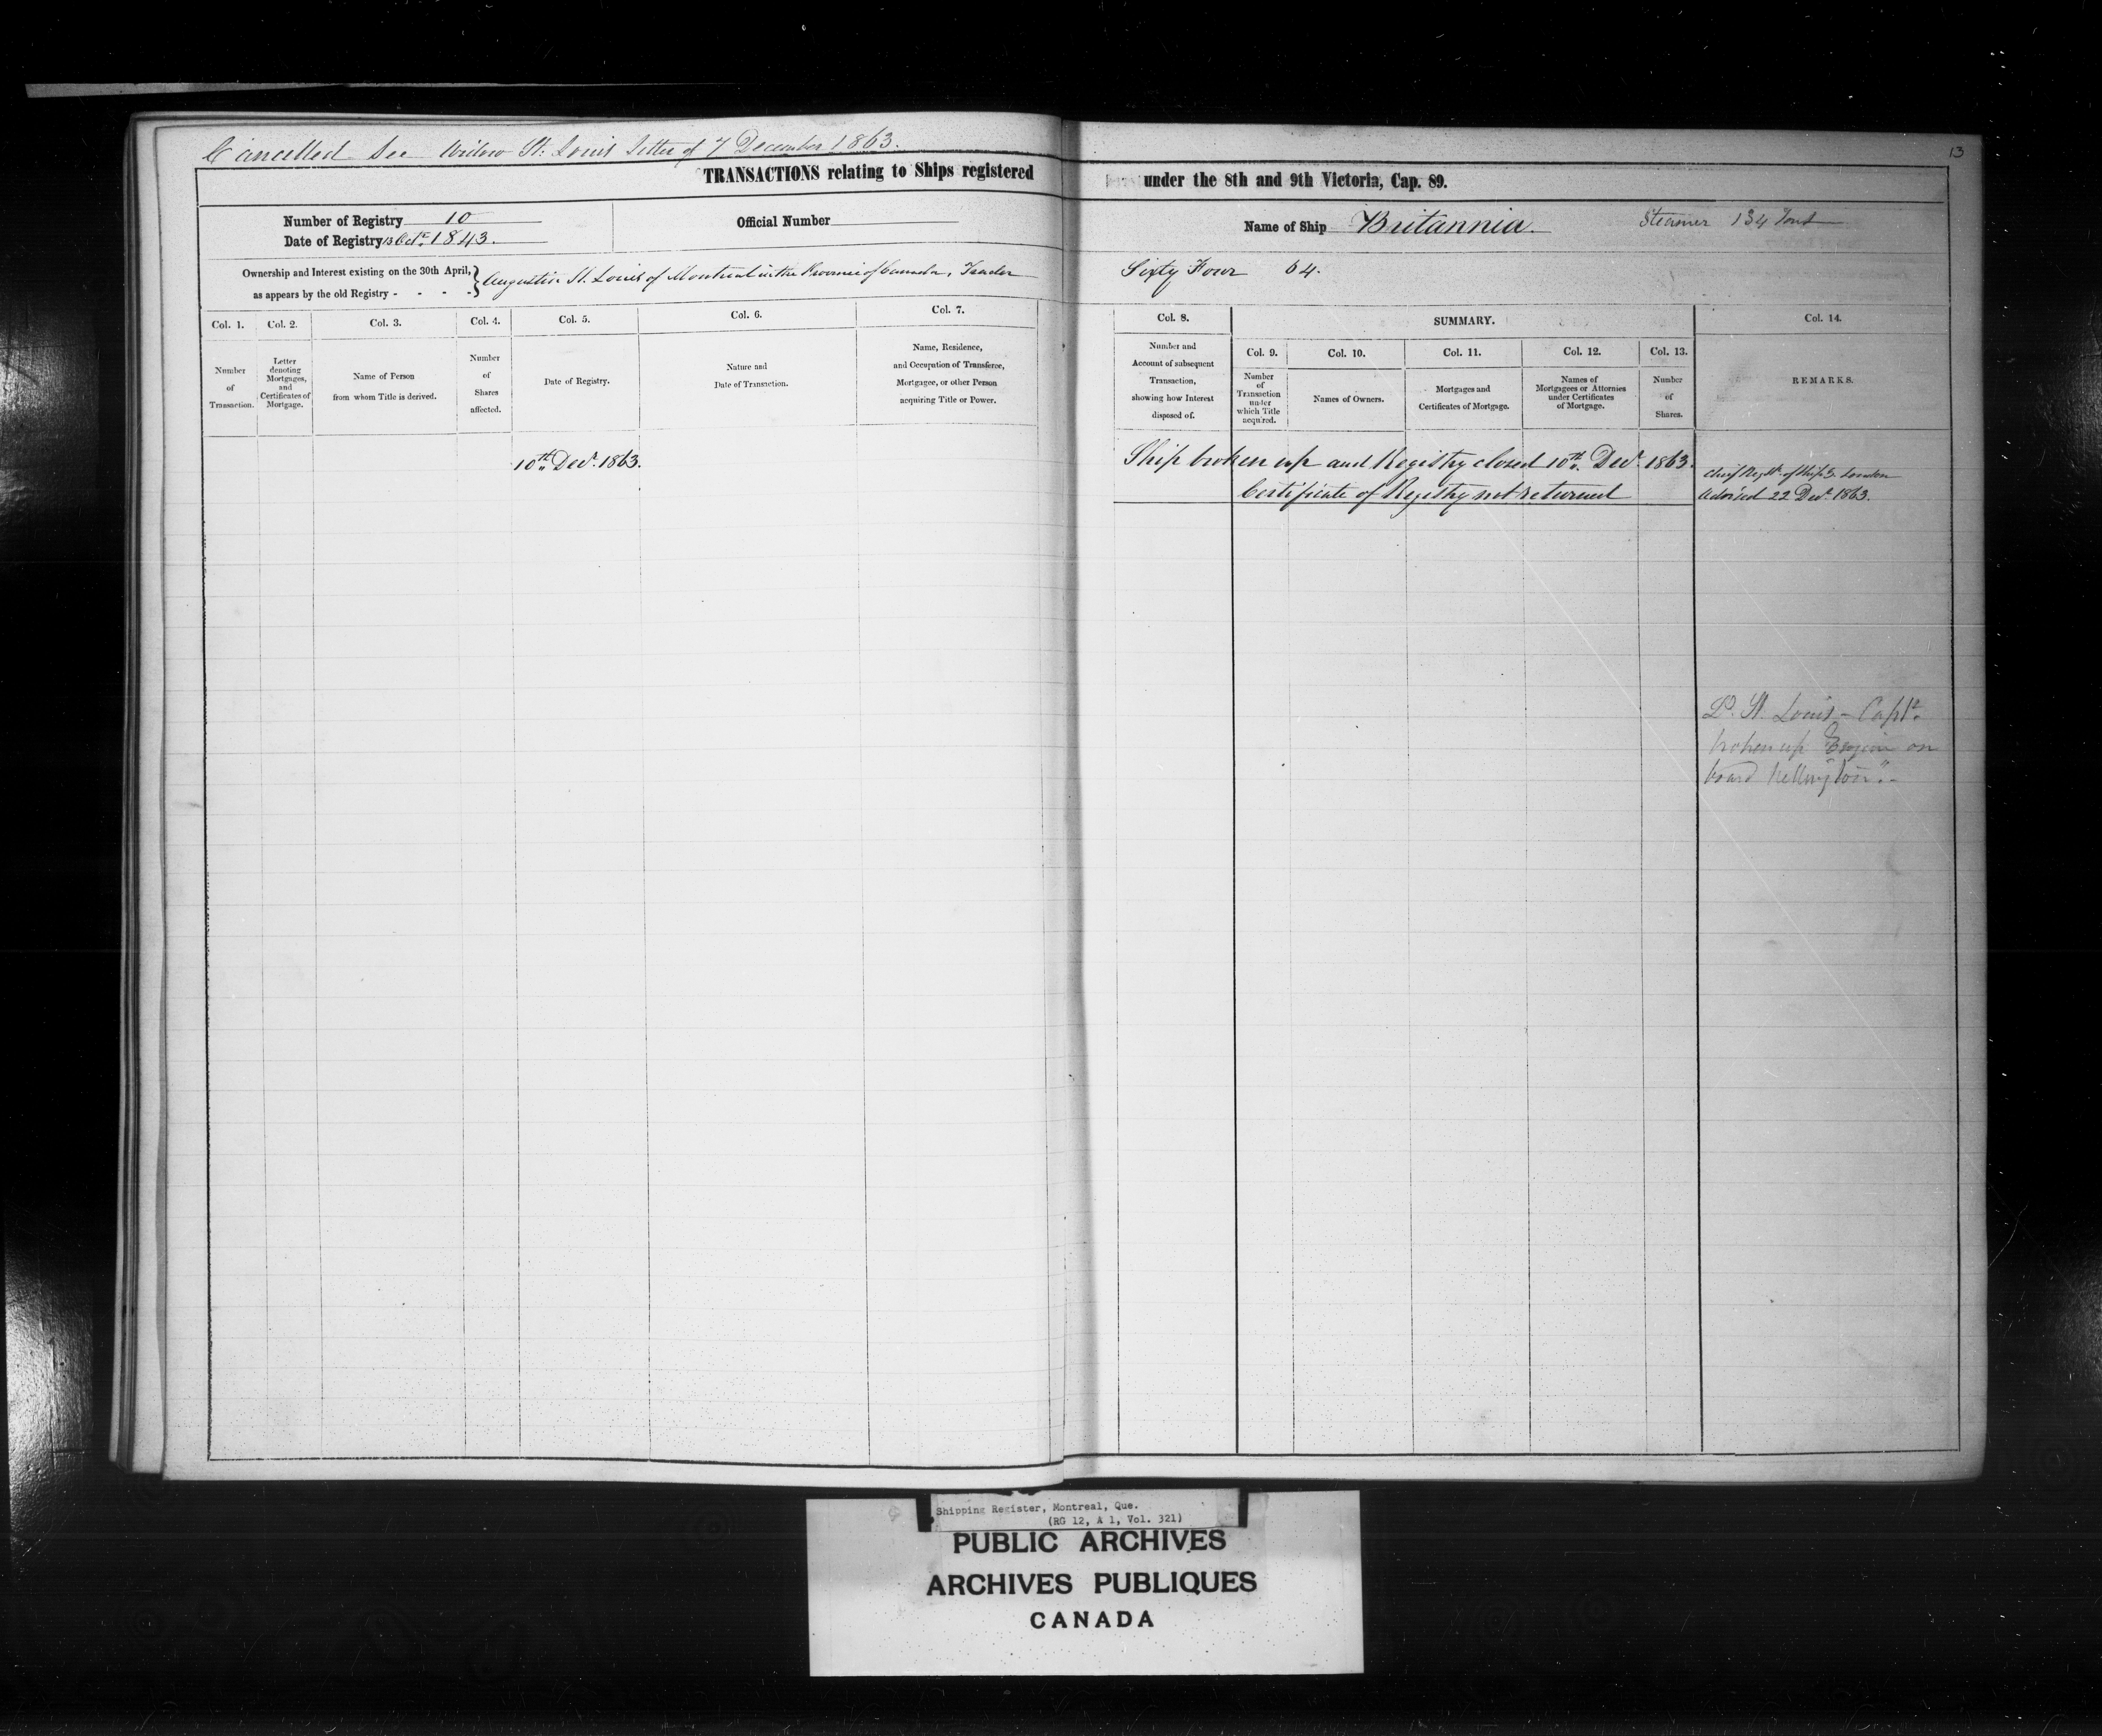 13
Cancelled See Widow St. Louis letter of 7 December 1863.
TRANSACTIONS relating to Ships registered under the 8th and 9th Victoria, Cap. 89.
Number of Registry 10
Date of Registry 13 Octr. 1843.
Official Number
Name of Ship Britannia. Steamer 134 Tons
Ownership and Interest existing on the 30th April,
as appears by the old Registry - - - -
Augustin St. Louis of Montreal in the Province of Canada, Trader Sixty Four 64.
Col. 1.
Number
of
Transaction.
Col. 2.
Letter
denoting
Mortgages,
and
Certificates of
Mortgage.
Col. 3.
Name of Person
from whom Title is derived.
Col. 4.
Number
of
Shares
affected.
Col. 5.
Date of Registry.
Col. 6.
Nature and
Date of Transaction.
Col. 7.
Name, Residence,
and Occupation of Transferee,
Mortgagee, or other Person
acquiring Title or Power.
Col. 8.
Number and
Account of subsequent
Transaction,
showing how Interest
disposed of.
SUMMARY.
Col. 9.
Number
of
Transaction
under
which Title
acquired.
Col. 10.
Names of Owners.
Col. 11.
Mortgages and
Certificates of Mortgage.
Col. 12.
Names of
Mortgagees or Attornies
under Certificates
of Mortgage.
Col. 13.
Number
of
Shares.
Col. 14.
REMARKS.
10th Decr. 1863.
Ship broken up and Registry closed 10th Decr. 1863.
Certificate of Registry not returned
Chief Regr. of Ships London
advised 22 Decr. 1863.
St. Louis - Capt.
broken up Engine on
board
Shipping Register, Montreal, Que.
(RG 12, A 1, Vol. 321)
PUBLIC ARCHIVES
ARCHIVES PUBLIQUES
CANADA